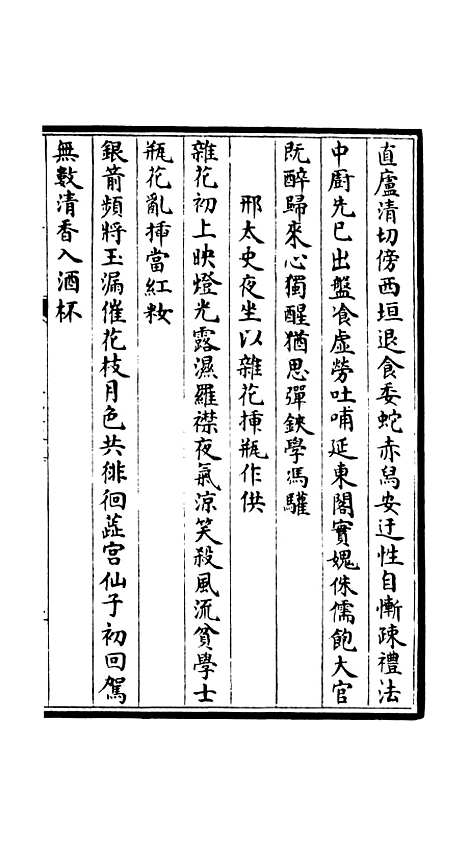 直廬清切傍西垣退食委蛇赤舄安迂性自慚疎禮法
中厨先已出盤飡虚勞吐哺延東閣實媿侏儒飽大官
既醉歸來心獨醒猶思彈鋏學馮驩
邢太史夜坐以雜花揷瓶作供
雜花初上映燈光露濕羅襟夜氣涼笑殺風流貧學士
瓶花亂揷當紅粧
銀箭頻將玉漏催花枝月色共徘徊蕋宫仙子初回駕
無數清香入酒杯